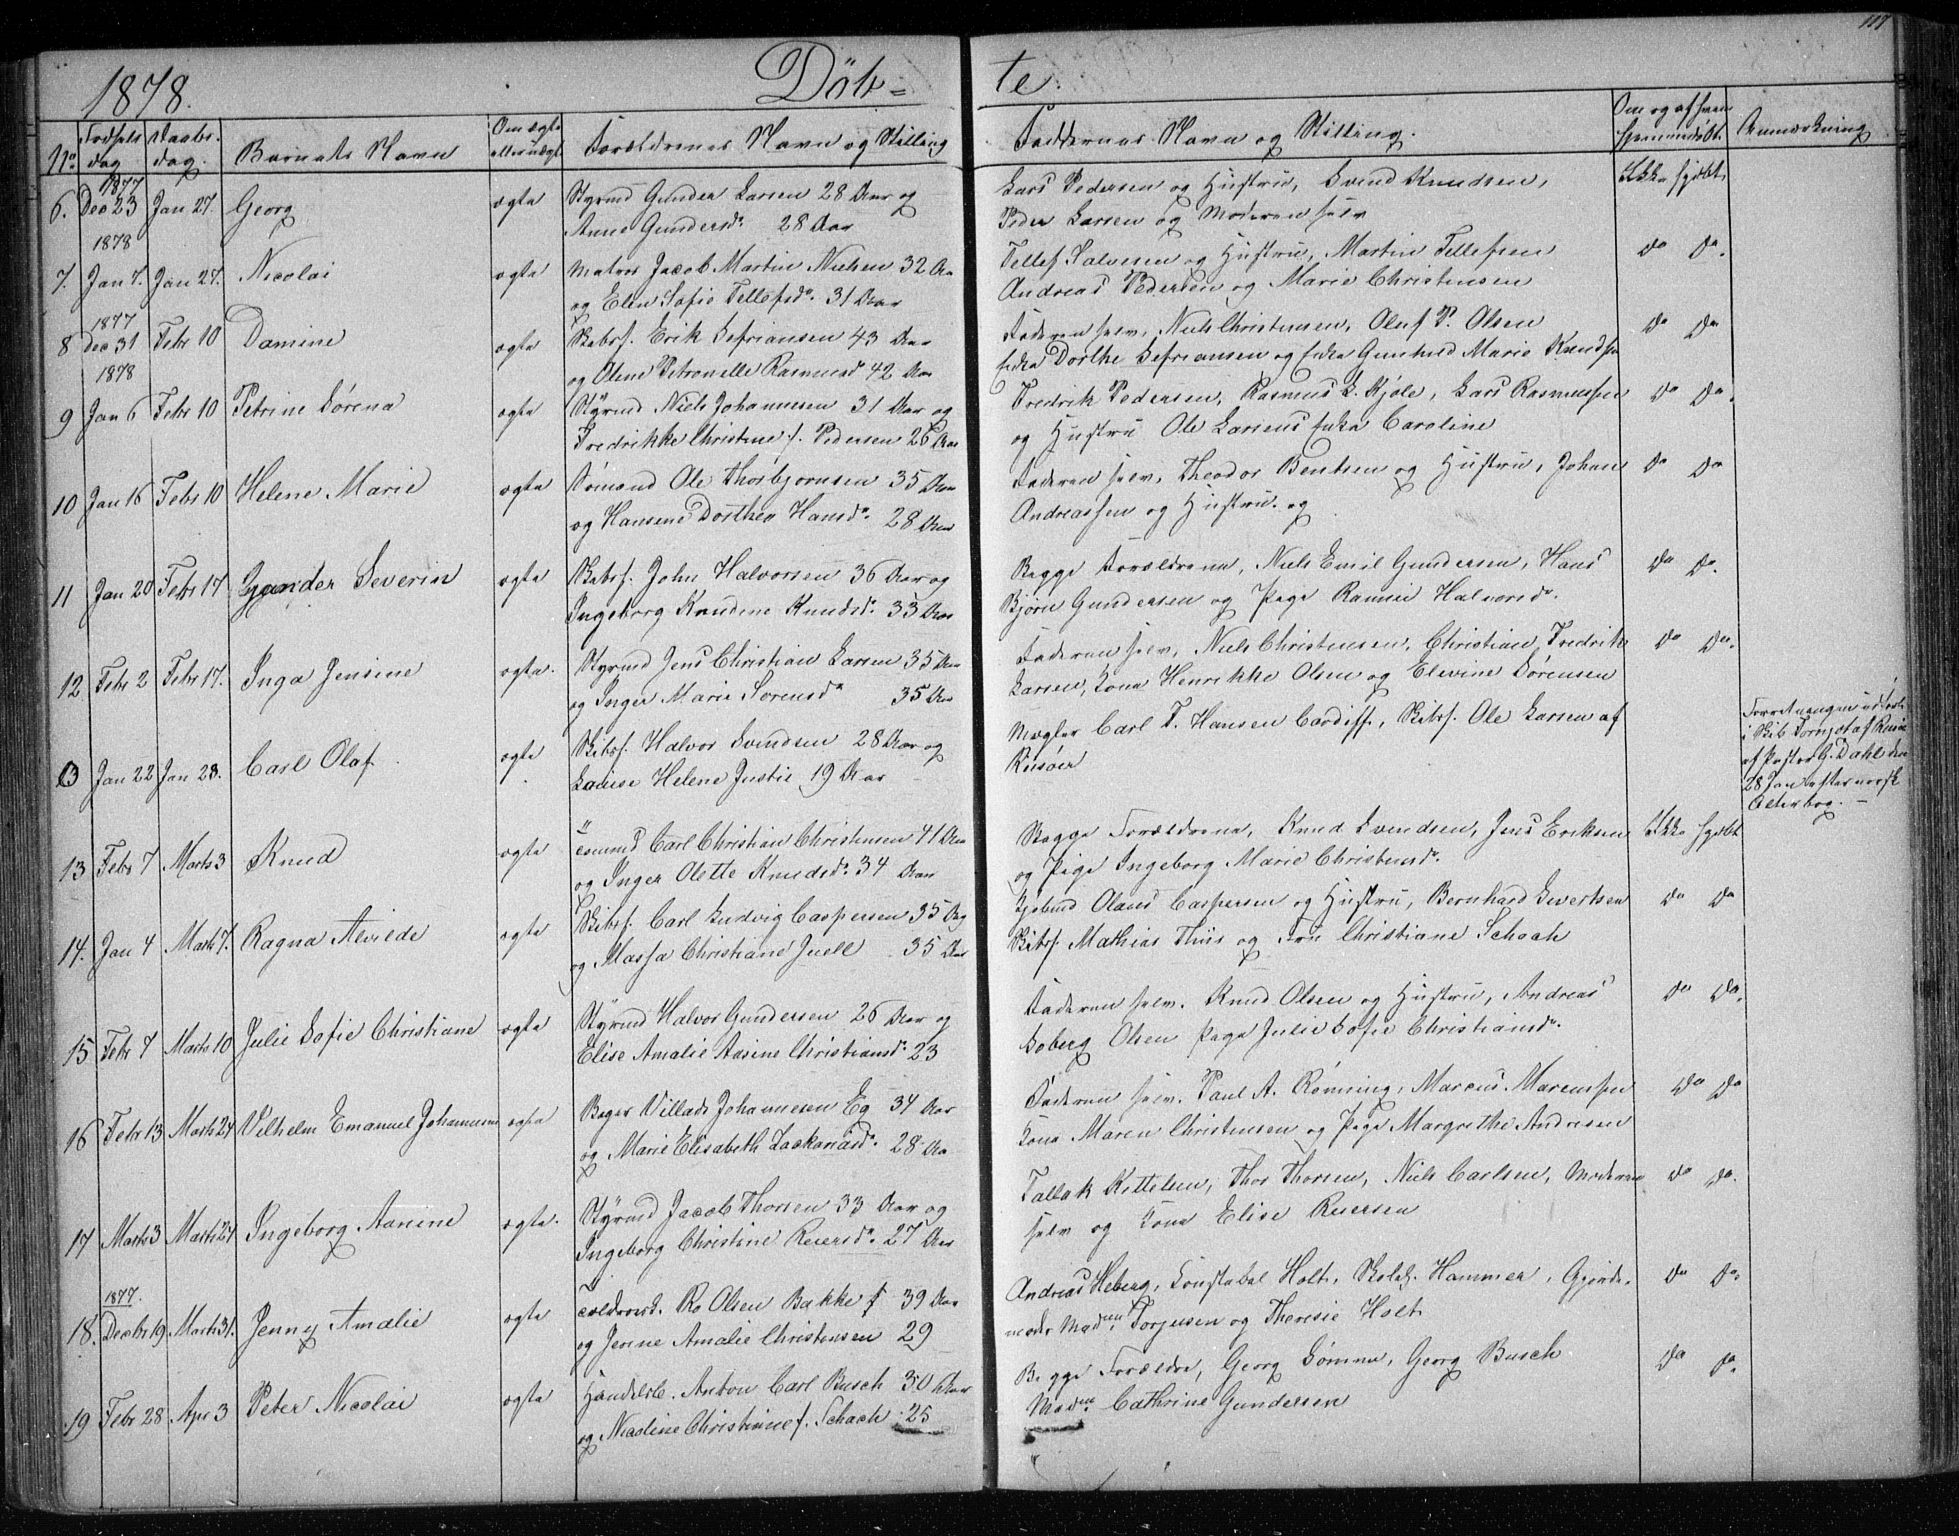 117
1878. Döb- te.
No Fødsels dag Daabs- dag. Barnets Navn Om ægte eller uægte Forældrenes Navn og Stilling Faddernes Navn og Stilling. Om og af hvem hjemmedøbt. Anmærkning
1877
6. Dec 23 Jan 27. Georg ægte Styrmd Gunder Larsen 28 Aar og Lars Pedersen og Hustru, Svend Knudsen, Ikke hjdøbt
Anne Gundersdr. 28 Aar Peder Larsen og Moderen selv
1878
7. Jan 7. Jan 27. Nicolai ægte Matros Jacob Martin Nielsen 32 Aa Tellef Salvesen og Hustru, Martin Tellefsen Do Do.
og Elen Sofie Tellefsdr. 31 Aar Andreas Pedersen og Marie Christensen
1877
8 Dec 31 Febr 10 Damine ægte Skibsf. Erik Sefriansen 43 Aar Faderen selv, Niels Christensen, Oluf P. Olsen Do Do
og Olene Petronelle Rasmusd 42 Aar Enke Dorthe Sefriansen og Enke Gunhild Marie Knudsen
1878
9 Jan 6 Febr 10 Petrine Sørena ægte Styrmd Niels Johannesen 31 Aar og Fredrik Pedersen, Rasmus L. Kjøle, Lars Rasmussen Do Do.
Fredrikke Christine f. Pedersen 26 Aar og Hustru Ole Larsens Enke Caroline
10 Jan 16 Febr 10 Helene Marie ægte Sømand Ole Thorbjørnsen 35 Aar Faderen selv, Theodor Bentsen og Hustru, Johan Do Do
og Hansine Dorthea Hansdr. 28 Aar Andreassen og Hustru. og
11 Jan 20 Febr 17 Gunder Severin ægte Skibsf. John Halvorsen 36 Aar og Begge Forældrene, Niels Emil Gundersen, Hans Do Do.
Ingeborg Knudine Knudsdr. 33 Aar Bjørn Gundersen og Pige Ranne Halvorsdr.
12 Febr 2 Febr 17. Inga Jensine ægte. Styrmd Jens Christian Larsen 35 Aar Faderen selv, Niels Christensen, Christian Fredrik Do Do.
og Inger Marie Sørensdr 35 Aar Larsen, Kone Henrikke Olsen og Elevine Sørensen
13 Jan 22 Jan 28. Carl Olaf. ægte Skibsf. Halvor Svendsen 28 Aar og Mægler Carl T. Hansen Cardiff, Skibsf. Ole Larsen af Forretningen udførte
Louise Helene Justie 19 Aar Risøer i Skib Tornjot af Risøer
af Pastor G. Dahl den
28 Jan efter norsk
Alterbog. -
13 Febr 7 Marts 3 Knud ægte Tømmd Carl Christian Christensen 41 Aar Begge Forældrene, Knud Svendsen, Jens Eriksen Ikke hjdøbt
og Inger Olette Knudsdr. 34 Aar og Pige Ingeborg Marie Christensdr.
14. Jan 4 Marts 7. Ragna Alvilde ægte Skibsf. Carl Ludvig Caspersen 35 Aar Kjøbmd Olaus Caspersen og Hustru, Bernhard Evertsen Do Do
og Massa Christiane Juell 35 Aar Skibsf. Mathias Thiis og Fru Christiane Schach
15 Febr 7 Marts 10 Julie Sofie Christiane ægte Styrmd Halvor Gundersen 26 Aar og Faderen selv. Knud Olsen og Hustru, Andreas Do Do.
Elise Amalie Aasine Christiansdr. 23 Soberg Olsen Pige Julie Sofie Christiansdr.
16 Febr 13 Marts 24 Vilhelm Emanuel Johannesen ægte Bager Villads Johannesen Eg 34 Aar Faderen selv. Paul A. Rømning, Marcus Marensen Do Do
og Marie Elisabeth Zackariasdr. 28 Aa Kone Maren Christensen og Pige Margrethe Andresen
17 Marts 3 Marts 24 Ingeborg Aanine ægte. Styrmd Jacob Thorsen 33 Aar og Tallak Kittelsen, Thor Thorsen, Niels Carlsen, Moderen Do Do.
Ingeborg Christine Reiersdr. 27 Aar selv og Kone Elise Reiersen
1877.
18. Decbr 19 Marts 31. Jenny Amalie ægte Toldrorsk. Ro Olsen Bakke f 39 Aar Andreas Heberg, Konstabel Holt, Skolek. Hammer, Gjorde- Do Do.
og Jenne Amalie Christensen 29 moder Madm Torjusen og Theresie Holt
19 Febr 28 Apr 3 Peter Nicolai ægte Handelsb. Anton Carl Busch 30 Aar Begge Forældre, Georg Sømme, Georg Busch Do Do.
og Nicoline Christiane f. Schach 25 Madm. Cathrine Gundersen